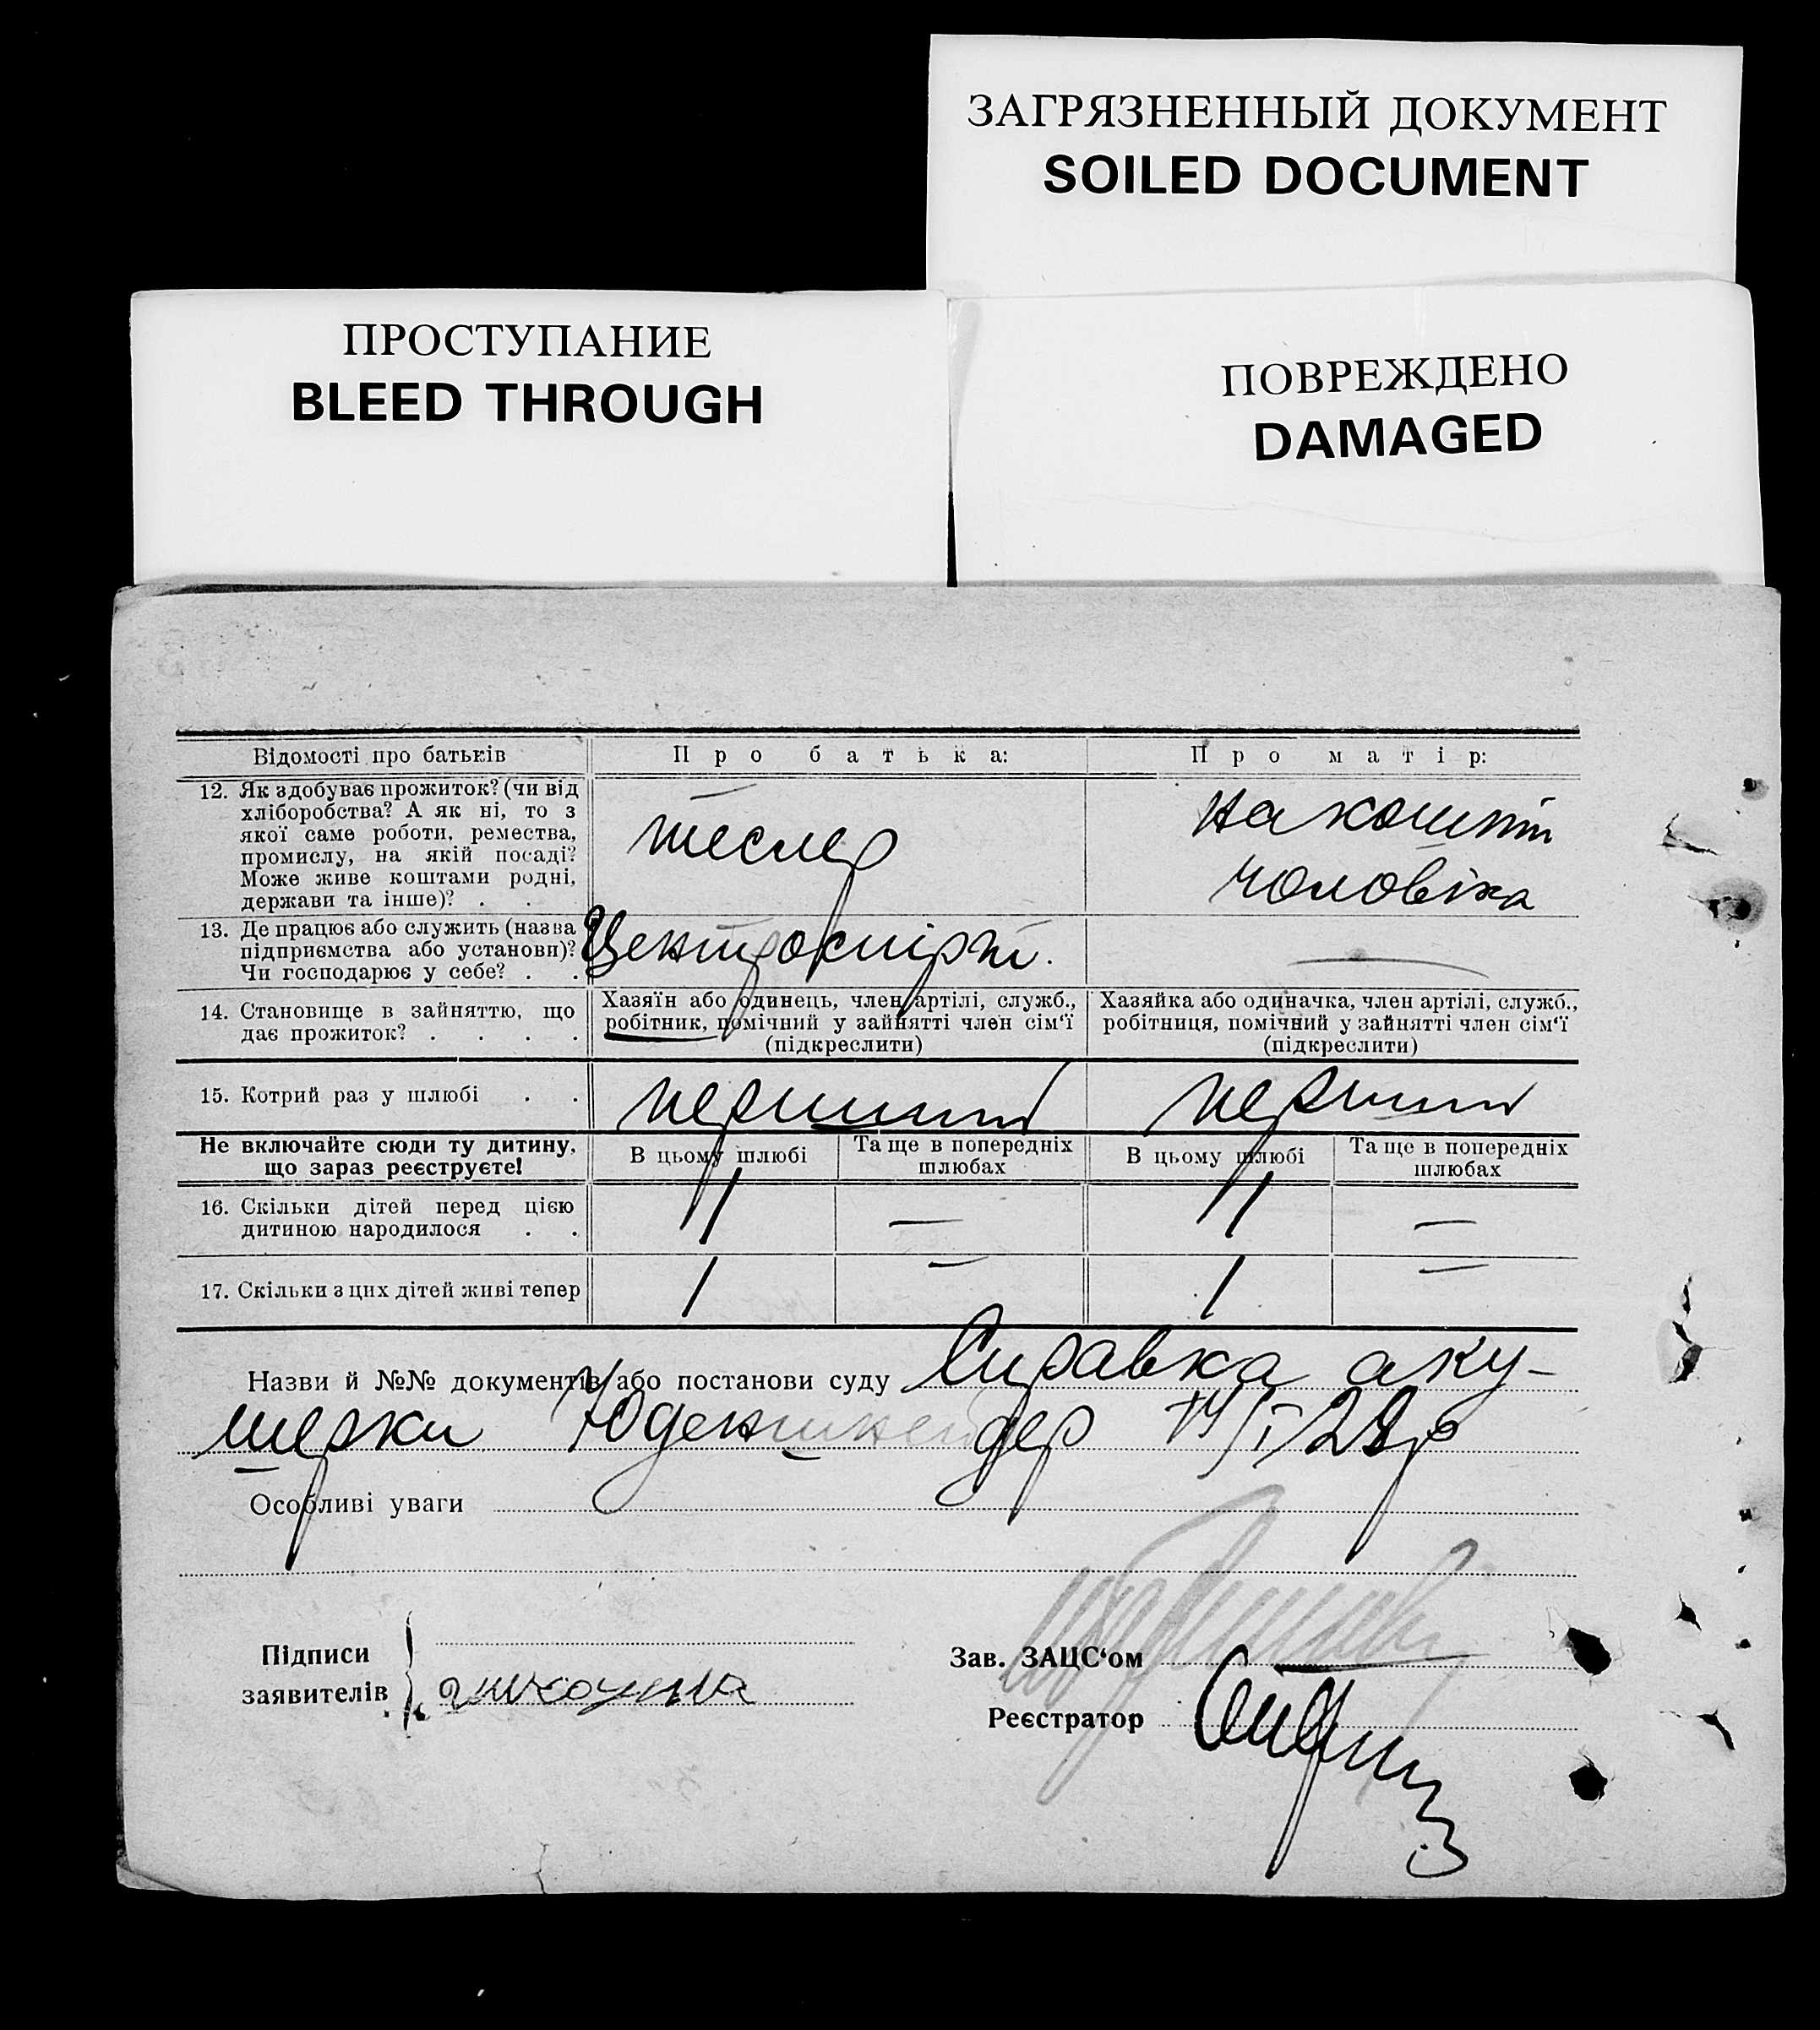 ЗАГРЯЗНЕННЫЙ ДОКУМЕНТ
SOILED DOCUMENT
ПРОСТУПАНИЕ
BLEED THROUGH
ПОВРЕЖДЕНО
DAMAGED
Відомості про батьків
Про батька:
Про матір:
12. Як здобуває прожиток? (чи від
хліборобства? А як ні, то з
якої саме роботи, ремества,
промислу, на якій посаді?
Може живе коштами родні,
держави та інше)? . .
тесляр
на кошти
чоловіка
13. Де працює або служить (назва
підприємства або установи)?
Чи господарює у себе? . .
Центроспірт.
—
14. Становище в зайняттю, що
дає прожиток? . . . .
Хазяїн або одинець, член артілі, служб.,
робітник, помічний у зайнятті член сім'ї
(підкреслити)
Хазяйка або одиначка, член артілі, служб.,
робітниця, помічний у зайнятті член сім'ї
(підкреслити)
15. Котрий раз у шлюбі . .
перший
перший
Не включайте сюди ту дитину,
що зараз реєструєте!
В цьому шлюбі
Та ще в попередніх
шлюбах
В цьому шлюбі
Та ще в попередніх
шлюбах
16. Скільки дітей перед цією
дитиною народилося . .
1 — 1 —
17. Скільки з цих дітей живі тепер
1 — 1 —
Назви й №№ документів або постанови суду Справка аку-
шерки
Особливі уваги
Підписи
заявителів
Зав. ЗАЦС'ом
Реєстратор